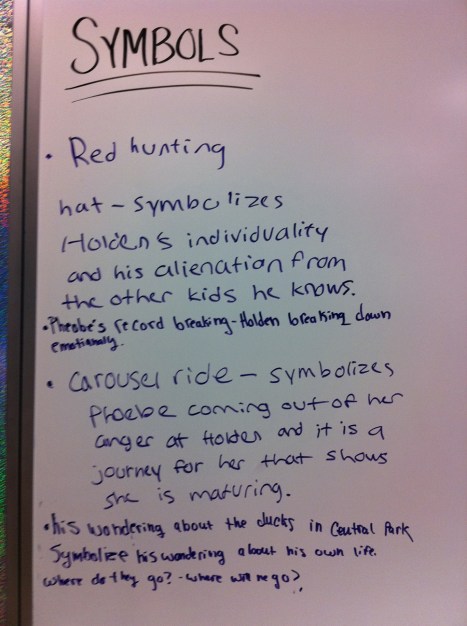 SYMBOLS
• Red hunting
hat - symbolizes
Holden's individuality
and his alienation from
the other kids he knows.
• Pheobe's record breaking - Holden breaking down
emotionally.
• Carousel ride - symbolizes
Phoebe coming out of her
anger at Holden and it is a
journey for her that shows
she is maturing.
• his wondering about the ducks in Central Park
Symbolize his wondering about his own life.
Where do they go? - where will he go?